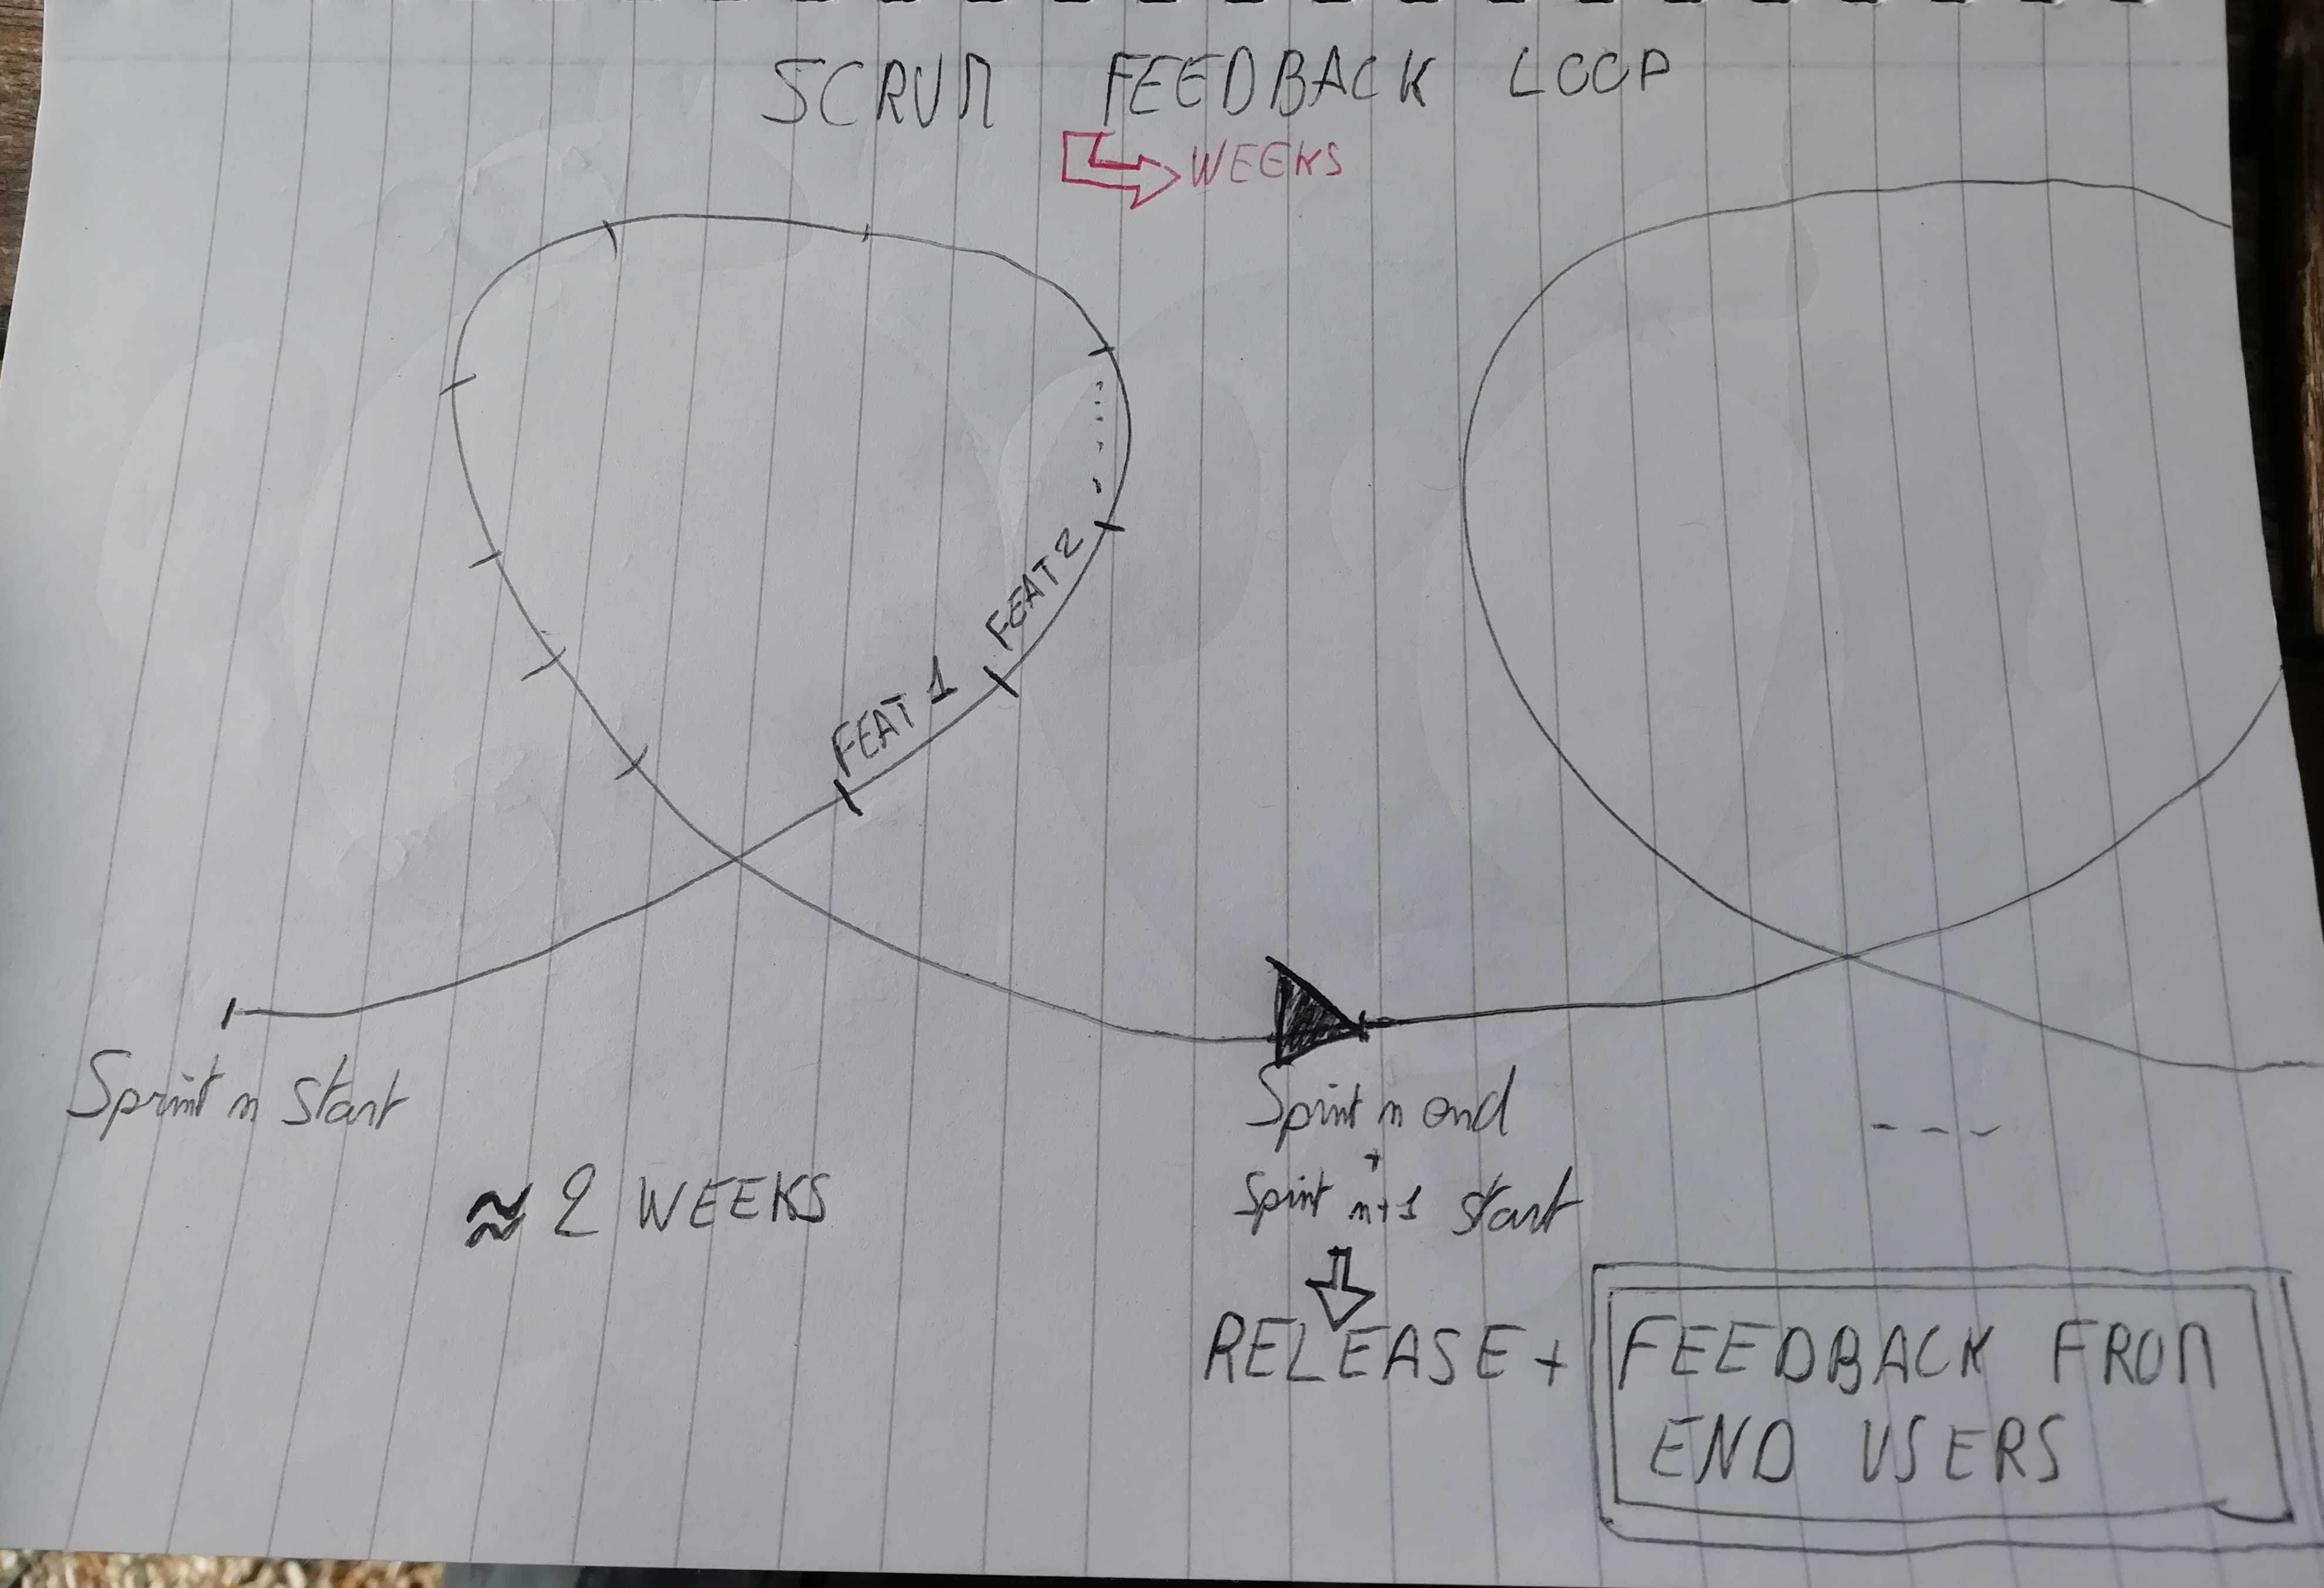 SCRUM FEEDBACK LOOP
WEEKS
FEAT 2
FEAT 1
Sprint n start
Sprint n end
+
Sprint n+1 start
≈ 2 WEEKS
RELEASE + FEEDBACK FROM
END USERS